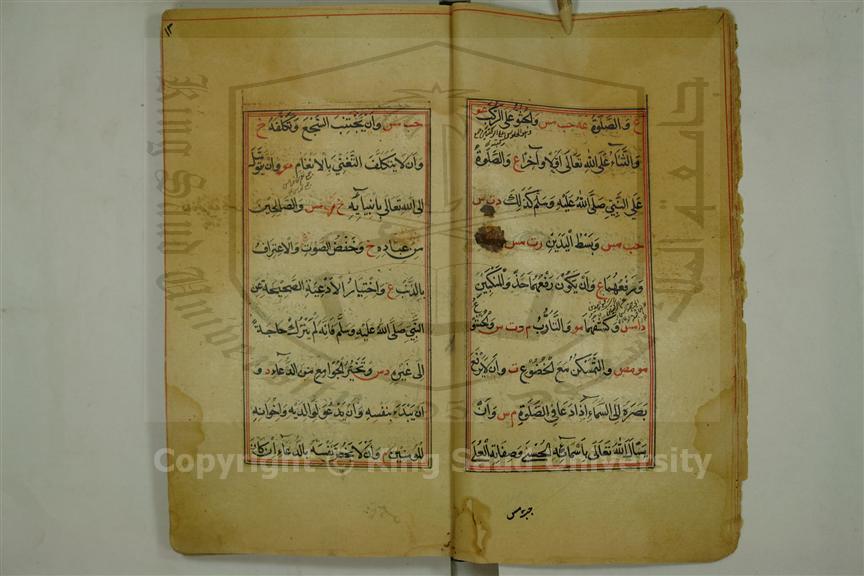 ع والصلوة عه حب مس والجثو على الركب عو
والثناء على الله تعالى اولا وآخرا ع والصلوة
على النبي صلى الله عليه وسلم كذلك د ت س
حب مس وبسط اليدين ر ت مس
ورفعهما ع وان يكون رفعهما حذو المنكبين
د ا مس وكشفهما مو والتأدب م د ت س والخشوع
مو مص والتمسكن مع الخضوع ت وان لا يرفع
بصره الى السماء اذا دعا في الصلوة م س وان
يسأل الله تعالى باسمائه الحسنى وصفاته العلى
حب مس
١٣
حب مس وان يجتنب السجع وتكلفه خ
وان لا يتكلف التغني بالانغام مو وان يتوسل
الى الله تعالى بانبيائه خ ر مس والصالحين
من عباده خ وخفض الصوت ع والاعتراف
بالذنب ع واختيار الادعية الصحيحة عن
النبي صلى الله عليه وسلم فانه لم يترك حاجة
الى غيره د س وتخير الجوامع من الدعاء د و
ان يبدء بنفسه وان يدعو لوالديه واخوانه
المؤمنين م وان لا يخص نفسه بالدعاء ان كان
Copyright © King Saud University